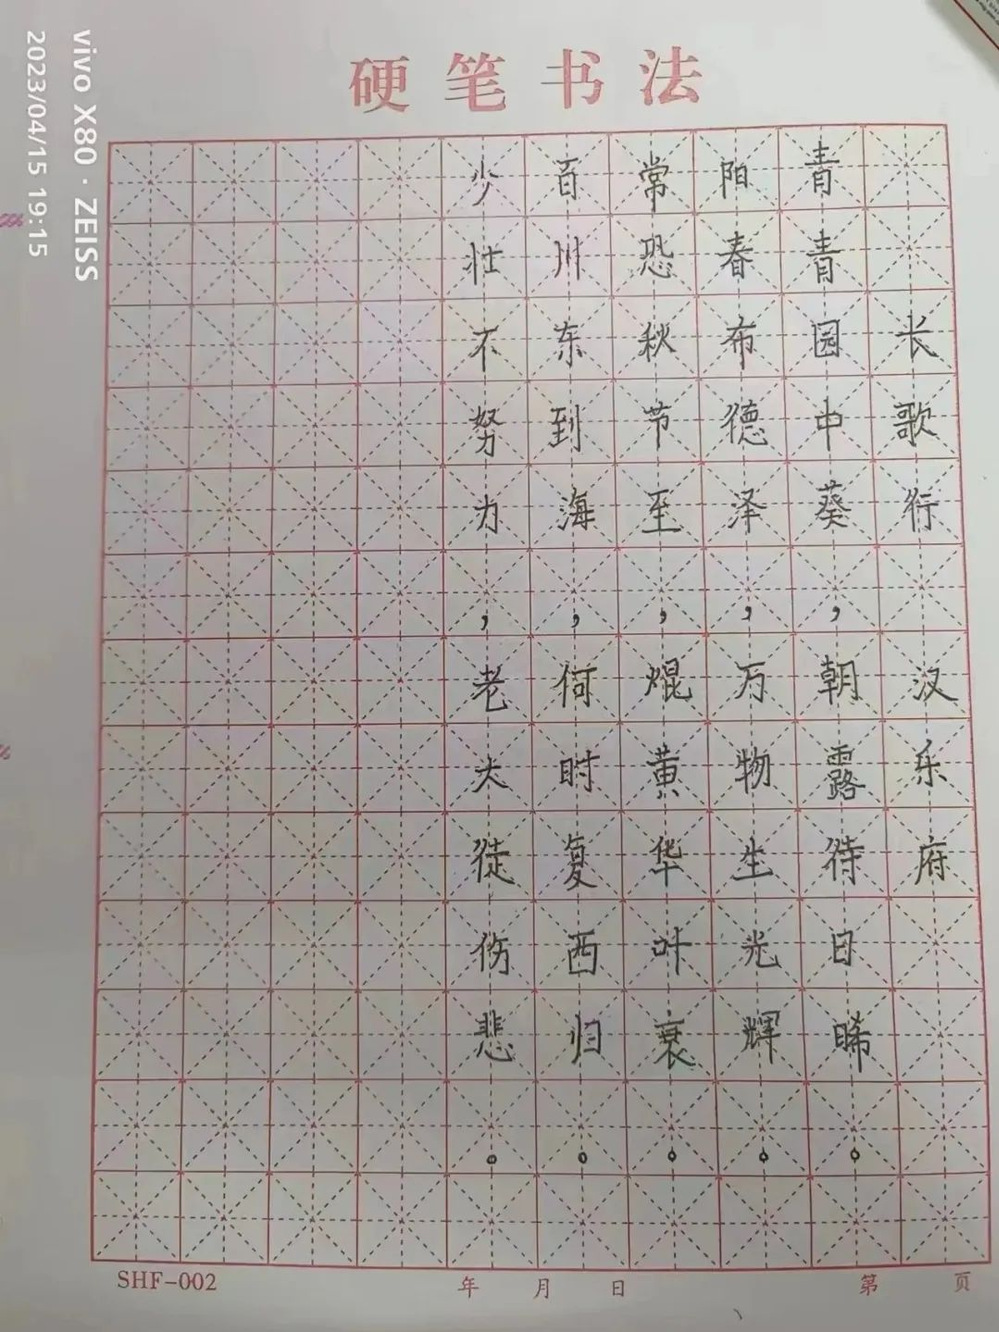 硬笔书法
长歌行 汉乐府
青青园中葵，朝露待日晞。
阳春布德泽，万物生光辉。
常恐秋节至，焜黄华叶衰。
百川东到海，何时复西归。
少壮不努力，老大徒伤悲。
SHF-002 年 月 日 第 页
vivo X80 · ZEISS
2023/04/15 19:15